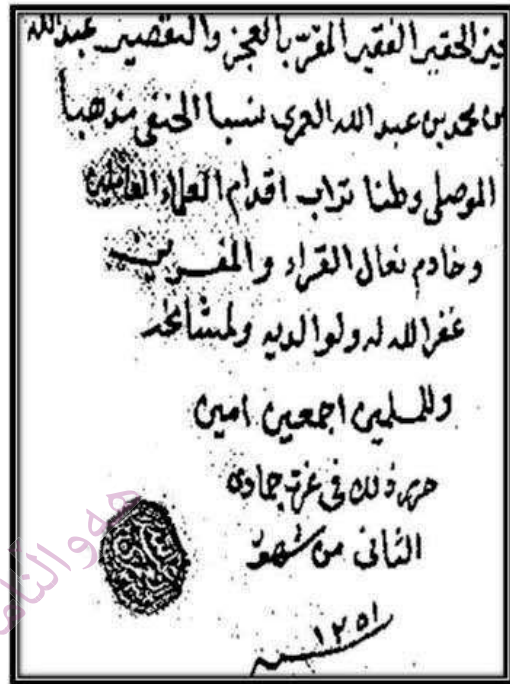 الحقير الفقير المقر بالعجز والتقصير عبد الله
بن محمد بن عبد الله العمري نسبا الحنفي مذهبا
الموصلي وطنا تراب اقدام العلماء العاملين
وخادم نعال القراء والمقرئين
غفر الله له ولوالديه ولمشايخه
وللمسلمين اجمعين امين
حرر ذلك في غرة جمادى
الثاني من شهور
سنة ١٢٥١